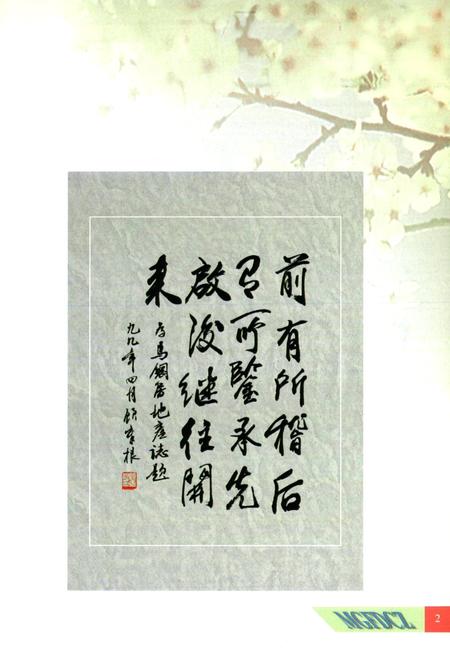 前有所稽后
有所鑒承先
啟後继往開
来
为馬鋼房地産誌题
九九年四月顾章根
MGFDCZ
2